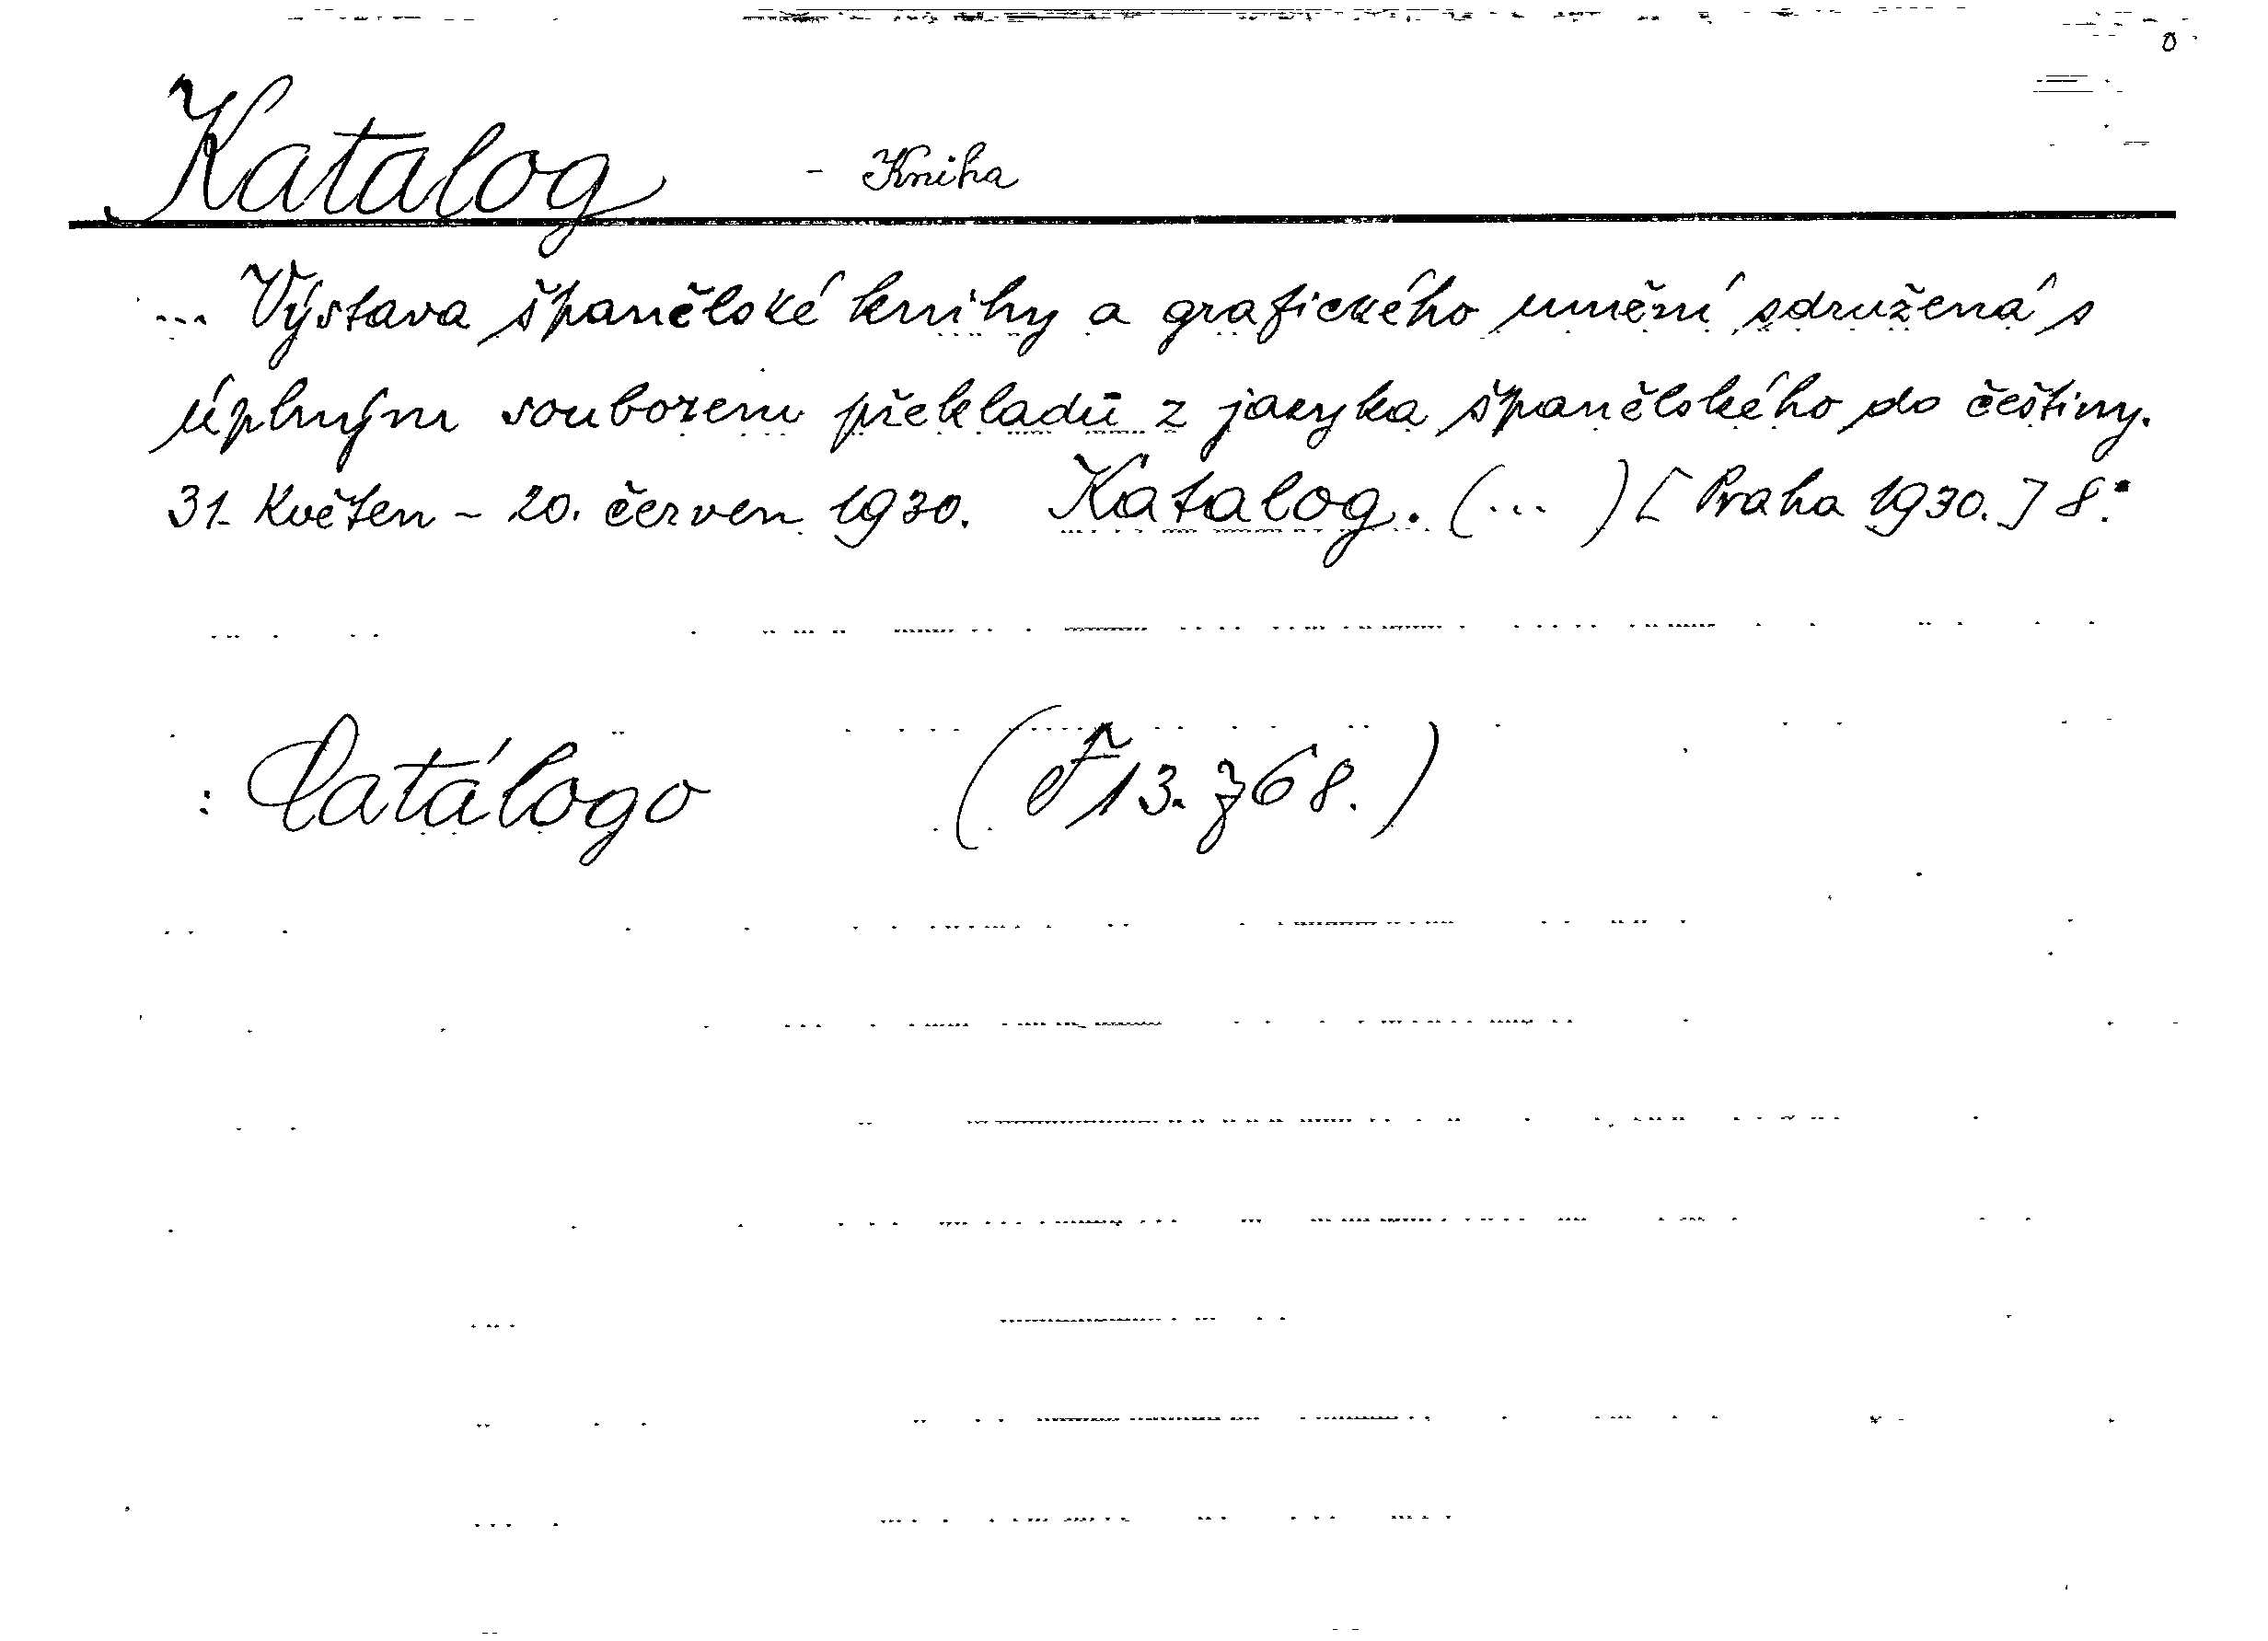 Katalog - Kniha
... Výstava španělské knihy a grafického umění sdružená s
úplným souborem překladů z jazyka španělského do češtiny.
31. Květen - 20. červen 1930. Katalog. (...) [Praha 1930.] 8°.
: Catálogo (F 13. z 68.)